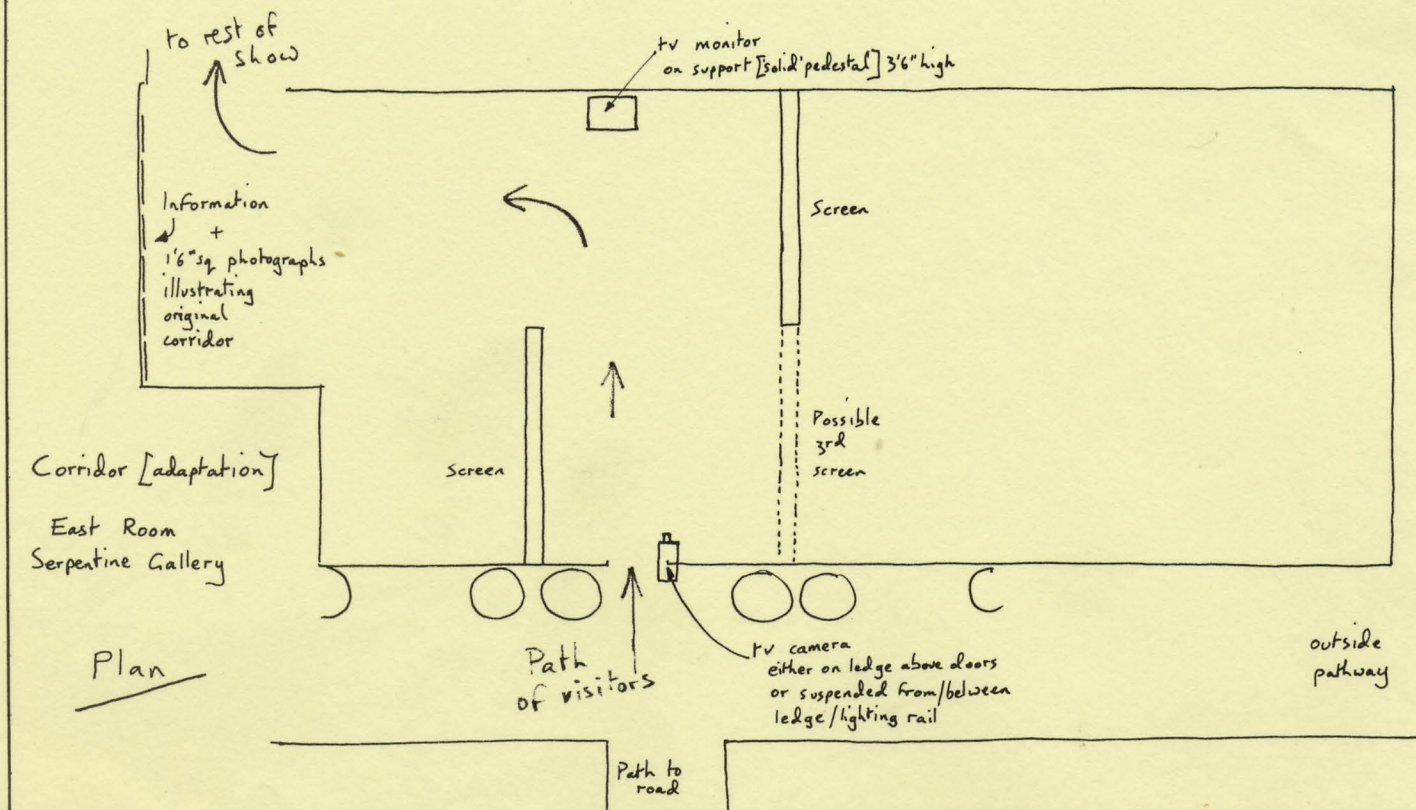 to rest of
show
tv monitor
on support ['solid' pedestal] 3'6" high
Information
+
1'6" sq photographs
illustrating
original
corridor
Screen
Possible
3rd
screen
Screen
Corridor [adaptation]
East Room
Serpentine Gallery
Plan
Path
of visitors
tv camera
either on ledge above doors
or suspended from/between
ledge/lighting rail
outside
pathway
Path to
road